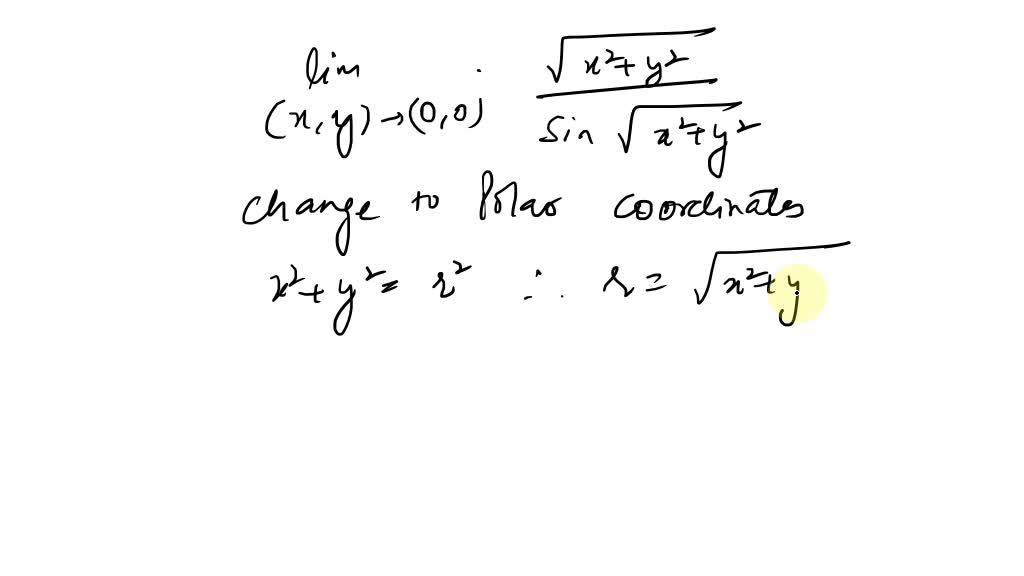 lim (x,y)→(0,0) √(x²+y²) / sin √(x²+y²)
change to Polar coordinates
x²+y² = r² ∴ r = √(x²+y